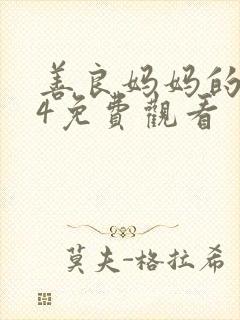 善良妈妈的
4免費觀看
莫夫-格拉希